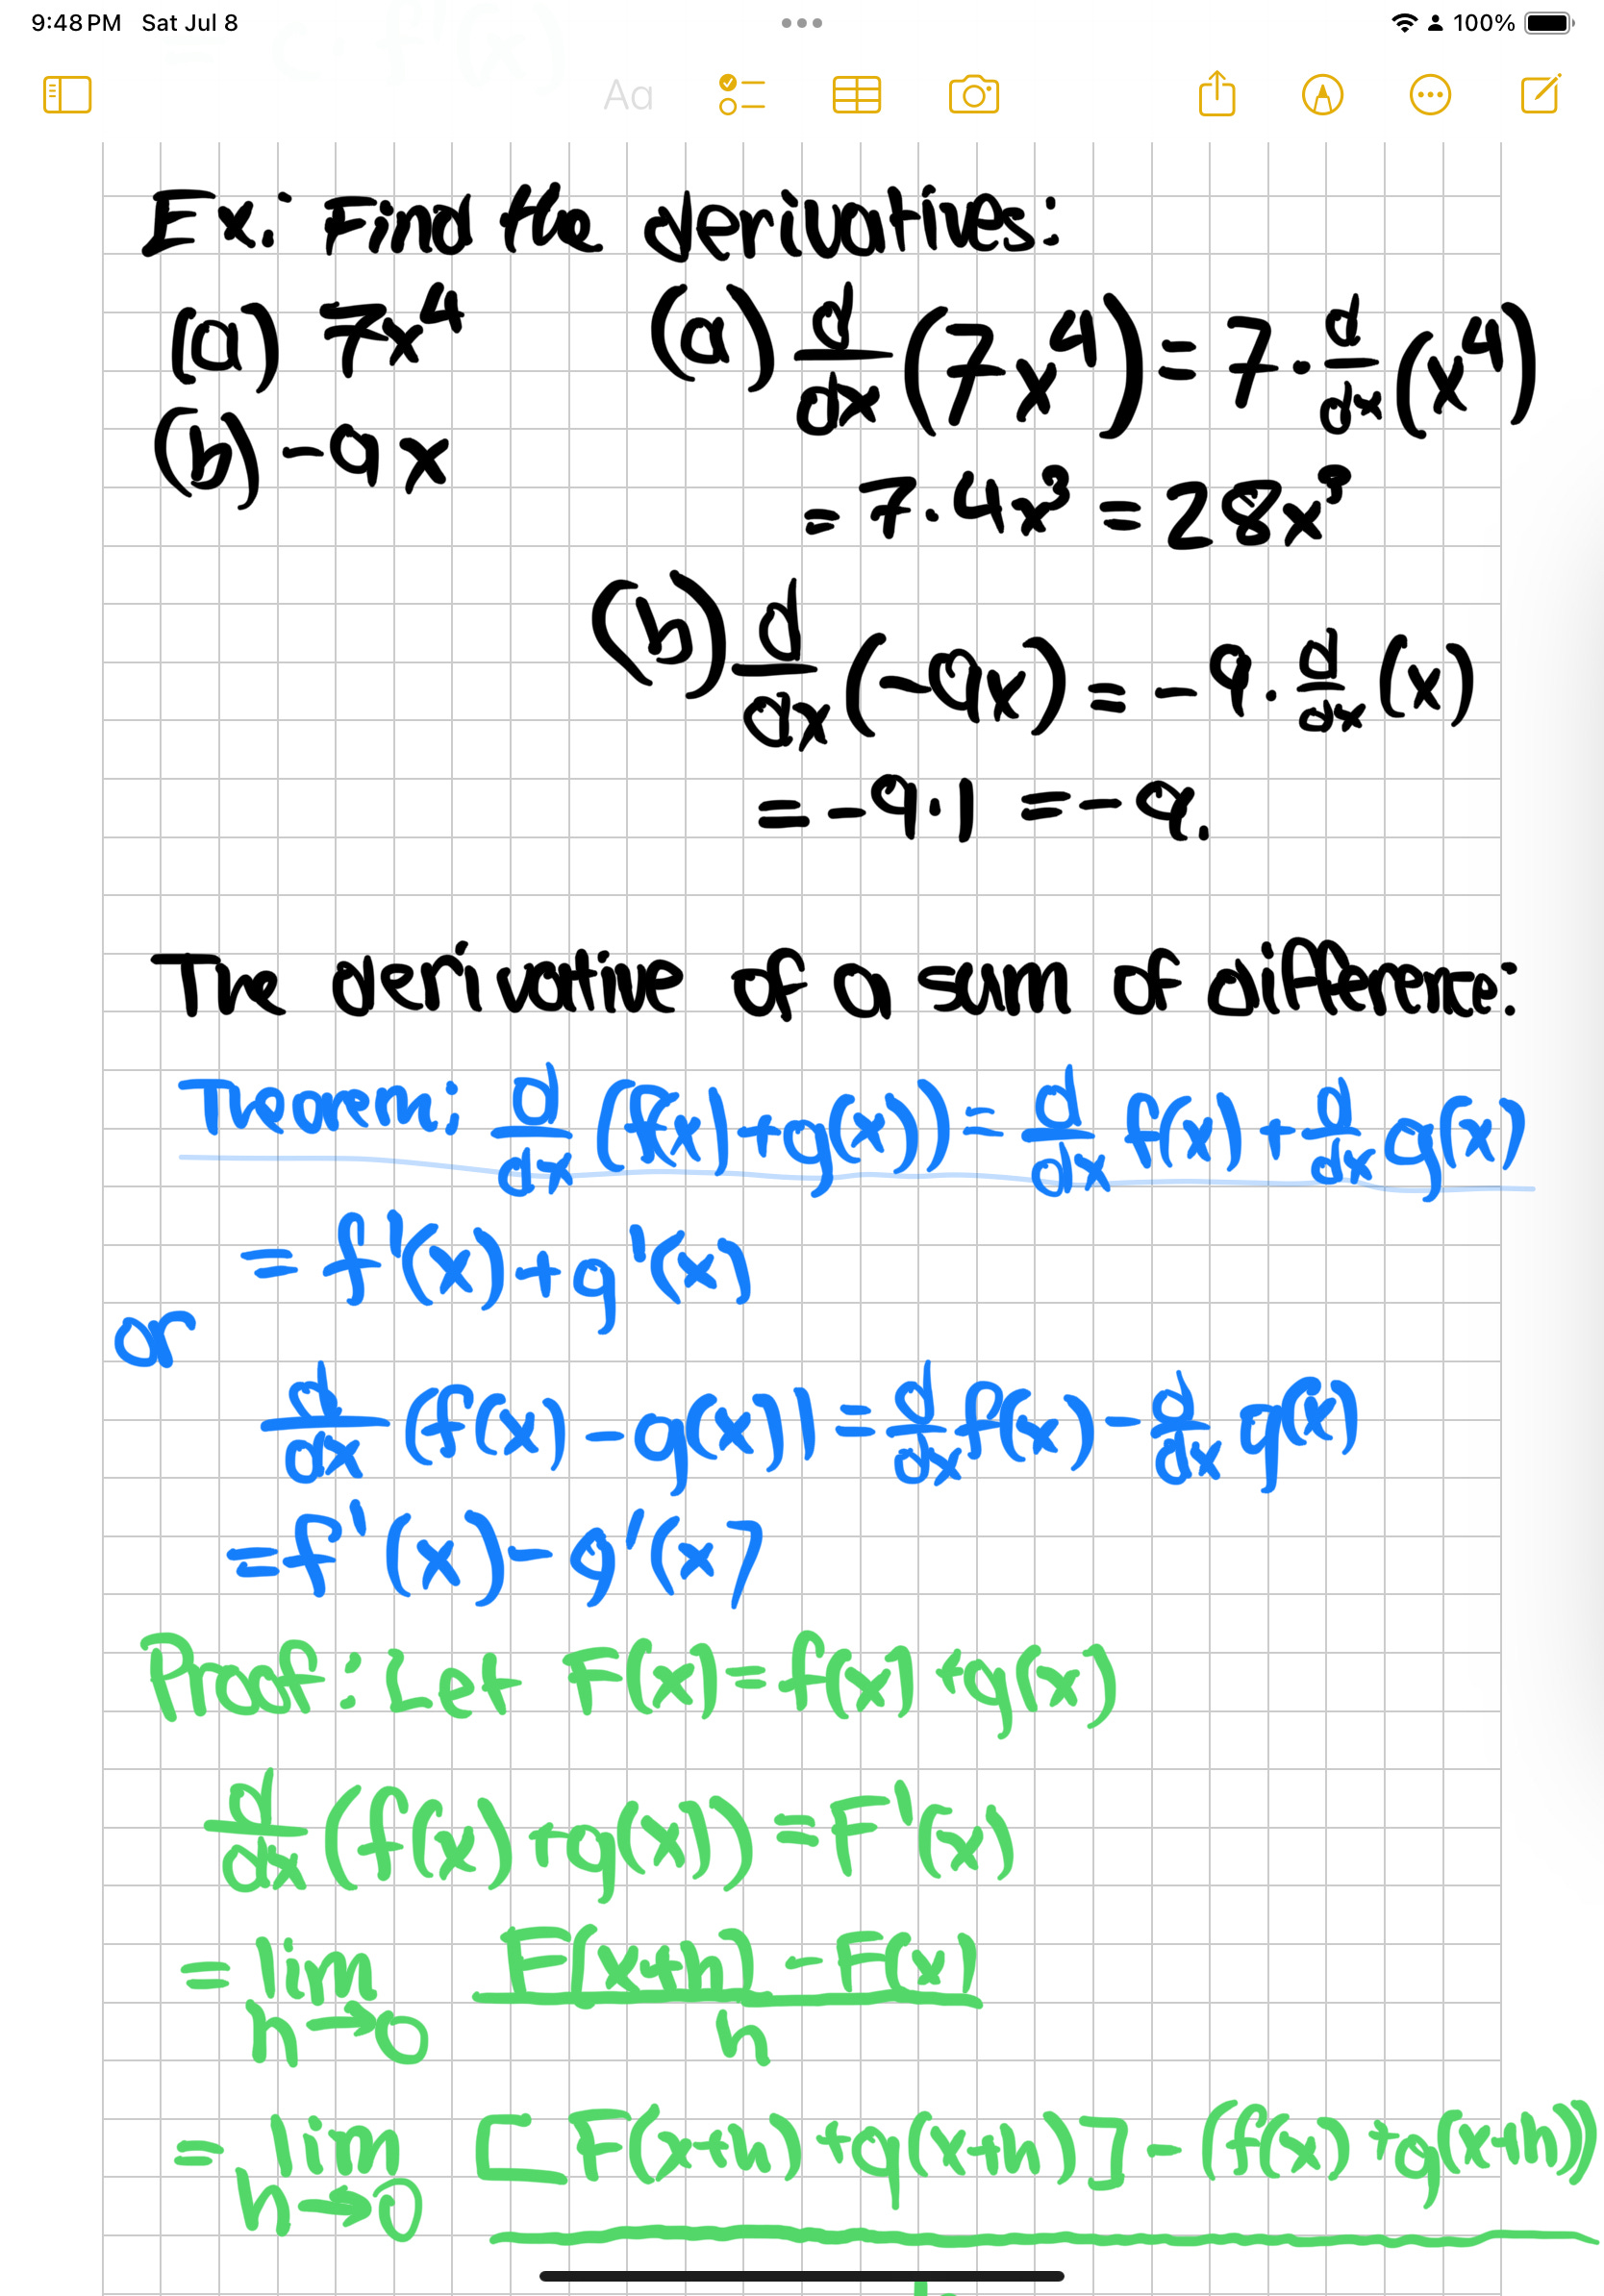 9:48 PM Sat Jul 8 100%
= c · f'(x)
Aa
Ex: Find the derivatives:
(a) 7x⁴ (a) d/dx (7x⁴) = 7 · d/dx (x⁴)
(b) -9x
= 7 · 4x³ = 28x³
(b) d/dx (-9x) = -9 · d/dx (x)
= -9 · 1 = -9.
The derivative of a sum of difference:
Theorem: d/dx (f(x) + g(x)) = d/dx f(x) + d/dx g(x)
= f'(x) + g'(x)
or
d/dx (f(x) - g(x)) = d/dx f(x) - d/dx g(x)
= f'(x) - g'(x)
Proof: Let F(x) = f(x) + g(x)
d/dx (f(x) + g(x)) = F'(x)
= lim h→0 F(x+h) - F(x) / h
= lim h→0 [F(x+h) + g(x+h)] - (f(x) + g(x+h))